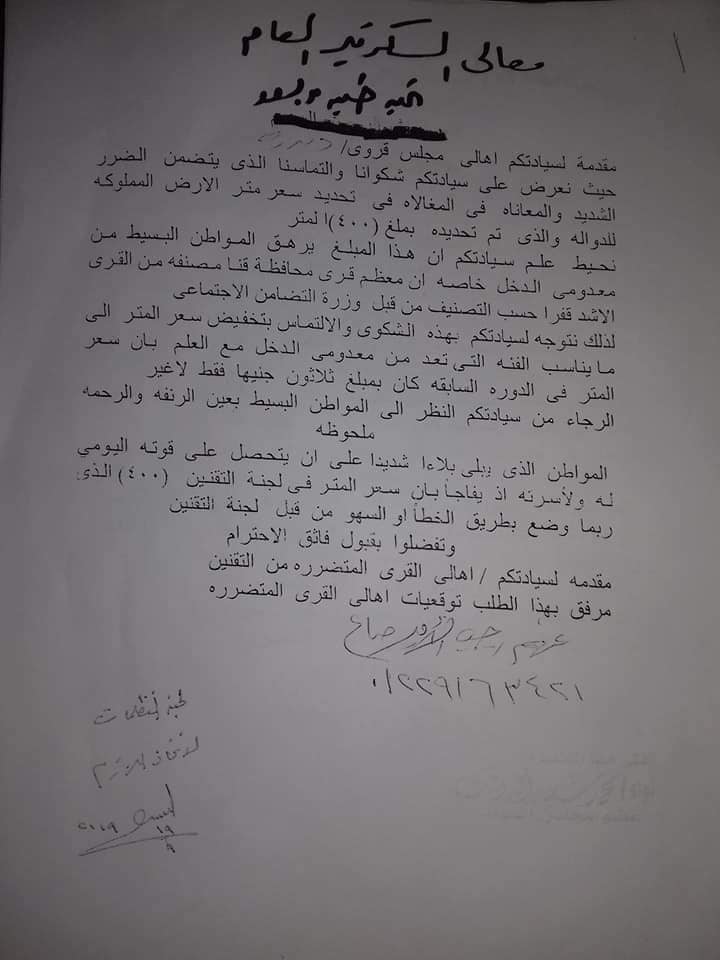 معالى السكرتير العام
تحيه طيبه وبعد
مقدمة لسيادتكم اهالى مجلس قروى/
حيث نعرض على سيادتكم شكوانا والتماسنا الذى يتضمن الضرر
الشديد والمعاناه فى المغالاه فى تحديد سعر متر الارض المملوكه
للدواله والذى تم تحديده بملغ (٤٠٠)ا لمتر
نحيط علم سيادتكم ان هذا المبلغ يرهق المواطن البسيط من
معدومى الدخل خاصه ان معظم قرى محافظة قنا مصنفه من القرى
الاشد فقرا حسب التصنيف من قبل وزرة التضامن الاجتماعى
لذلك نتوجه لسيادتكم بهذه الشكوى والالتماس بتخفيض سعر المتر الى
مايناسب الفئه التى تعد من معدومى الدخل مع العلم بان سعر
المتر فى الدوره السابقه كان بمبلغ ثلاثون جنيها فقط لاغير
الرجاء من سيادتكم النظر الى المواطن البسيط بعين الرئفه والرحمه
ملحوظه
المواطن الذى يبلى بلاءا شديدا على ان يتحصل على قوته اليومي
له ولأسرته اذ يفاجأ بان سعر المتر فى لجنة التقنين (٤٠٠) الذى
ربما وضع بطريق الخطأ او السهو من قبل لجنة التقنين
وتفضلوا بقبول فائق الاحترام
مقدمه لسيادتكم / اهالى القرى المتضرره من التقنين
مرفق بهذا الطلب توقعيات اهالى القرى المتضرره
عنهم رجب
٠١٢٢٩١٦٣٤٢١
لاتخاذ اللازم
١٩
٩
٢٠١٩